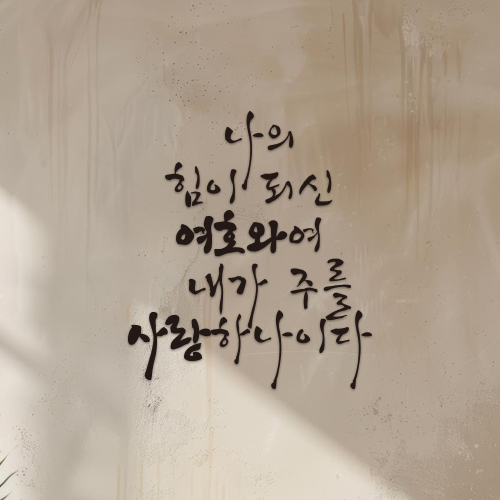 나의
힘이 되신
여호와여
내가 주를
사랑하나이다